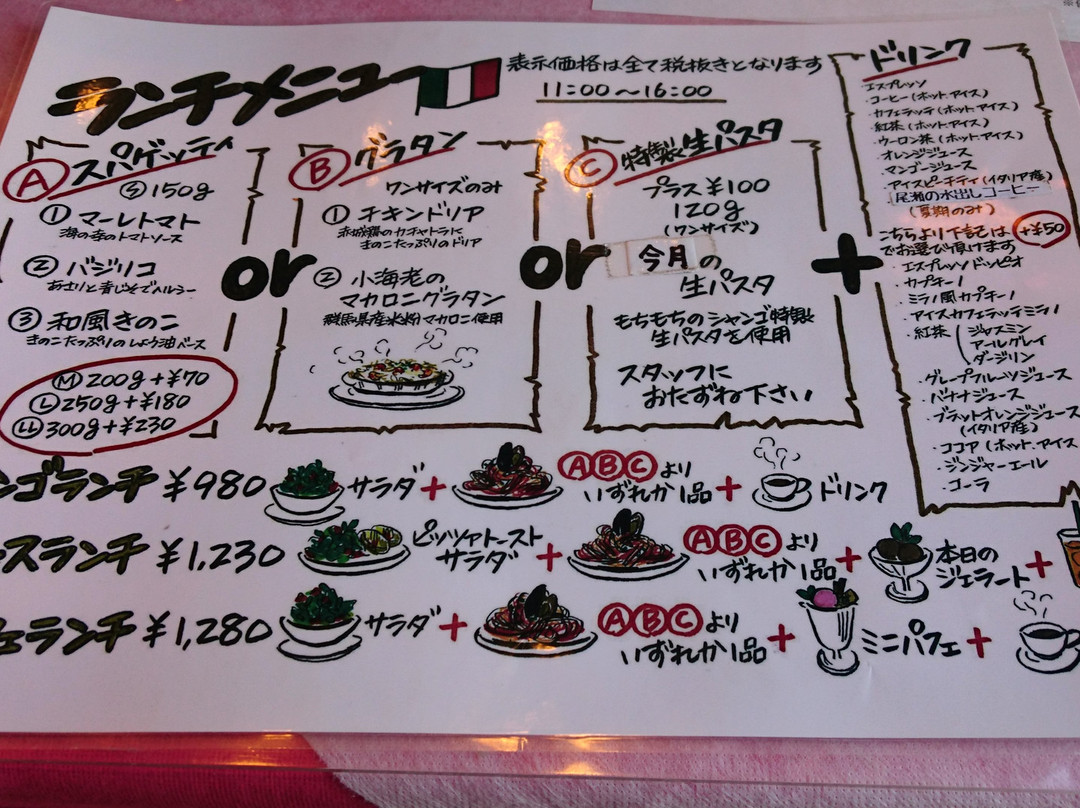 ランチメニュー
表示価格は全て税抜きとなります
11:00～16:00
Ⓐスパゲッティ
Ⓢ150g
①マーレトマト
海の幸のトマトソース
②バジリコ
あさりと青じそでヘルシー
③和風きのこ
きのこたっぷりのしょう油ベース
Ⓜ200g+¥70
Ⓛ250g+¥180
LL 300g+¥230
or
Ⓑグラタン
ワンサイズのみ
①チキンドリア
赤城鶏のカチャトラに
きのこたっぷりのドリア
②小海老の
マカロニグラタン
群馬県産米粉マカロニ使用
or
Ⓒ特製生パスタ
プラス¥100
120g
(ワンサイズ)
今月の
生パスタ
もちもちのシャンゴ特製
生パスタを使用
スタッフに
おたずね下さい
+
ドリンク
エスプレッソ
・コーヒー(ホット.アイス)
・カフェラッテ(ホット.アイス)
・紅茶(ホット.アイス)
・ウーロン茶(ホット.アイス)
・オレンジジュース
・マンゴージュース
・アイスピーチティ(イタリア産)
尾瀬の水出しコーヒー
(夏期のみ)
こちらより下記は+¥50
でお選び頂けます
・エスプレッソドッピオ
・カプチーノ
・ミラノ風カプチーノ
・アイスカフェラッテミラノ
・紅茶(ジャスミン
アールグレイ
ダージリン
・グレープフルーツジュース
・バナナジュース
・ブラッドオレンジジュース
(イタリア産)
・ココア(ホット.アイス
・ジンジャーエール
・コーラ
ンゴランチ ¥980 サラダ+ⒶⒷⒸよりいずれか1品+ドリンク
スランチ ¥1,230 ピッツァトーストサラダ+ⒶⒷⒸよりいずれか1品+本日のジェラート+
ェランチ ¥1,280 サラダ+ⒶⒷⒸよりいずれか1品+ミニパフェ+